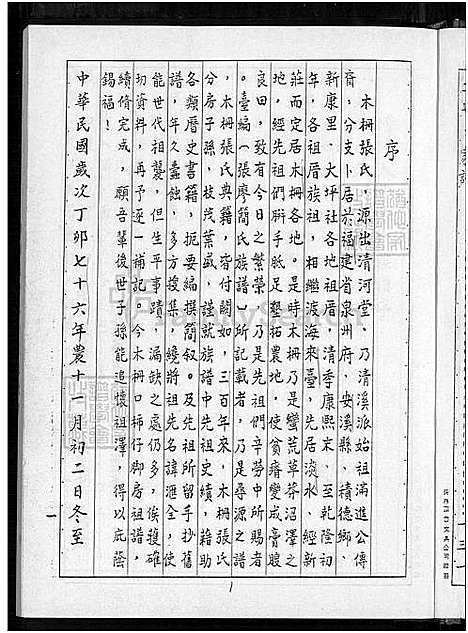 序
木柵張氏,源出清河堂、乃清溪派始祖滿進公傳
裔,分支卜居於福建省泉州府、安溪縣、積德鄉、
新康里、大坪社各地祖厝,清季康熙末、至乾隆初
年,各祖厝族祖,相繼渡海來臺,先居淡水、經新
莊而定居木柵各地。是時木柵乃是蠻荒草莽沼澤之
地,經先祖們胼手胝足墾拓農地,使貧瘠變成膏腴
良田,致有今日之繁榮,乃是先祖們辛勞中所賜者
。臺編︵張廖簡氏族譜︶所記載者,乃是尋源之譜
,木柵張氏典籍,皆付闕如,三百年來,木柵張氏
分房子孫,枝茂葉盛,謹就族譜中先祖史績,藉助
各類曆史書籍,扼要編撰簡叙。及先祖所留手抄舊
譜,年久蠹蝕,多方搜集,纔將祖先名諱滙全,使
能世代相襲,但生平事蹟,漏缺之處仍多,俟獲確
切資料,再予逐一補記,今木柵口柿仔脚房祖譜,
續脩完成,願吾輩後世子孫能追懷祖澤,得以庇蔭
錫福!
中華民國歲次丁卯七十六年農十一月初二日冬至
一
1